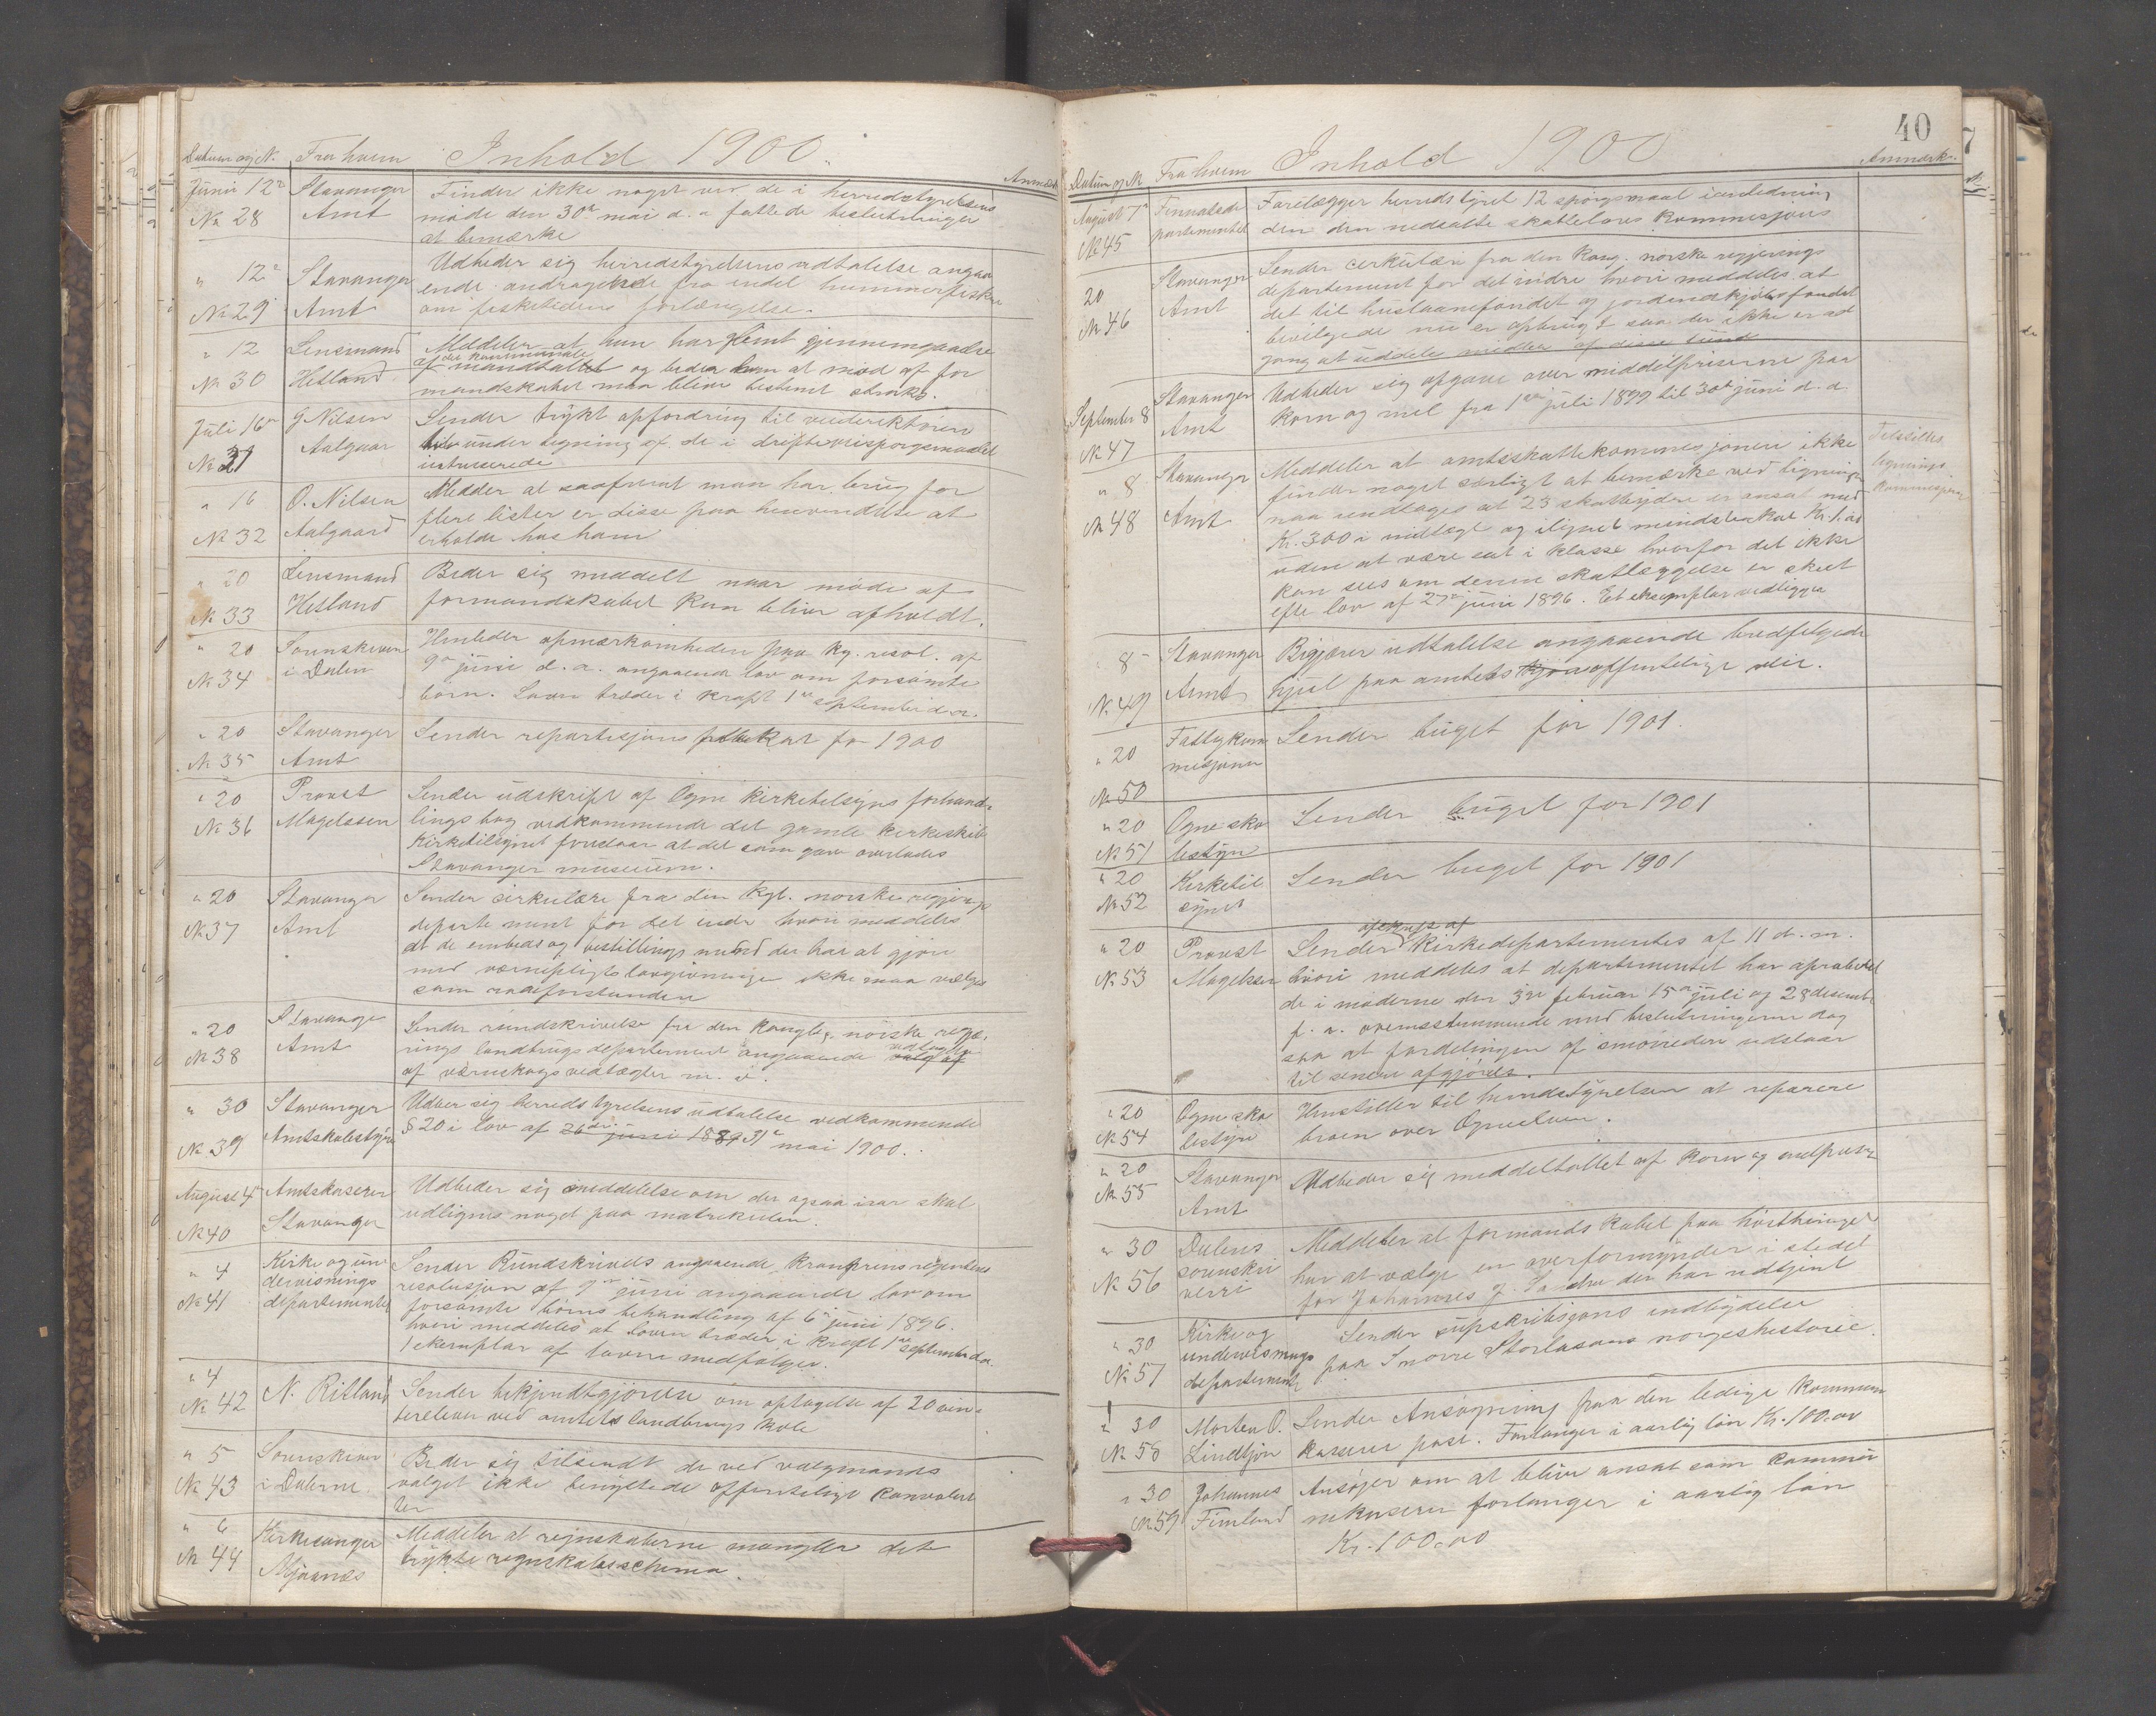 Datum og N. Fra hvem Inhold 1900. Anmærk
Juni 12te Stavanger Finder ikke noget ved de i herredstyrelsens
No 28 Amt møde den 30te mai d. a fattede beslutninger
at bemærke
" 12te Stavanger Udbeder sig herredstyrelsens udtalelse angaa
No 29 Amt ende andragende fra endel hummerfiskere
om fisketidens forlængelse.
" 12 Lensmand Meddeler at han har gjennemgaaelse
No 30 Hetland af det kommunale mandtallet og beder om at mød af for
mandskabet maa blive bestemt straks.
Juli 16de G Nilsen Sender trykt opfordring til veidirektøren
No 31 Aalgaar under tegning af de i driftsveisporgsmaalet
intreserede
" 16 O. Nilsen Medder at saafremt man har brug for
No 32 Aalgaard flere lister er disse paa henvendelse at
erholde hos ham
" 20 Lensmand Beder sig meddelt naar møde af
No 33 Hetland formandskabet kan blive afholdt.
" 20 Sorenskriven Henleder opmærksomheden paa kg. resol. af
No 34 i Dalen 9de juni d. a. angaaende lov om forsømte
børn. Loven træder i kraft 1ste september d. a.
" 20 Stavanger Sender repartisjons for 1900
No 35 Amt
" 20 Provst Sender udskrift af Ogne kirketilsyns forhand=
No 36 Magelssen lings bog vedkommende det gamle kirkeskib
Kirketilsynet foreslaar at det som gave overlades
Stavanger museum.
" 20 Stavanger Sender sirkulære fra den kgl. norske regjerings
No 37 Amt departement for det indre hvori meddeles
at de embeds og bestillings mænd der har at gjøre
med værnepligts lovgivninge ikke maa vælges
som rodeforstandere
" 20 Stavanger Sender rundskrivelse fra den kongle. norske regje=
No 38 Amt rings landbrugs departement angaaende udlæg
af værneskogs vedtægter m. v.
" 30 Stavanger Udber sig herreds tyrelsens udtalelse vedkommende
No 39 Amtskolestyre § 20 i lov af 26de juni 1889 31te mai 1900.
August 4de Amtskaserer Udbeder sig meddelelse om der ogsaa i aar skal
No 40 Stavanger udlignes noget paa matrikulen.
" 4 Kirke og un Sender Rundskrivels angaaende Kronprinsregentens
No 41 dervisnings resolusjon af 9de juni angaaende lov om
departementet forsømte børns behandling af 6te juni 1896.
hvori meddeles at loven træder i kraft 1ste september d.a.
1 eksemplar af loven medfølger.
" 4
No 42 N. Ritland Sender bekjendtgjørelse om optagelse af 20
elever ved amtets landbrugs skole
" 5 Sorenskriver Beder sig tilsendt de ved valgmands
No 43 i Dalerne valget ikke benyttede offentelige konvolut
ter
" 6 Kirkesanger Meddeler at regnskaberne mangler det
No 44 Mjaanes trykte regnskabsschema.
40
Datum og N Fra hvem Inhold 1900 Anmærk.
August 7de Finnatsde Forelægger herredstyret 12 spørgsmaal i anledning
No 45 partementet den den nedsatte skattelovs kommisjons
20 Stavanger Sender cirkulære fra den Kong. norske regjerings
No 46 Amt departement for det indre hvori meddeles at
det til huslaanefondet og jordindkjøbsfondet
bevilgede nu er opbrugt saa der ikke er ad
gang at uddele midler af disse
September 8 Stavanger Udbeder sig opgave over middelpriserne paa
No 47 Amt korn og mel fra 1ste juli 1899 til 30te juni d. a.
" 8 Stavanger Meddeler at amtsskattekommisjonen ikke Tilstilles
No 48 Amt finder noget særligt at bemærke ved ligningen lignings
naa undtages at 23 skattydere er ansat med kommisjon
Kr. 300 i indtægt og ilignet mindsteskat Kr. 1.00
uden at være sat i klasse hvorfor det ikke
kan sees om denne skatlæggelse er skeet
efte lov af 27de juni 1896. Et eksemplar vedligger
" 8 Stavanger Begjærer udtalelse angaaende bredfelgede
No 49 Amt hjul paa amtets offentelige veie.
" 20 Fattigkom Sender buget for 1901.
No 50 misjonen
" 20 Ogne sko Sender buget for 1901
No 51 lestyre
" 20 Kirketil Sender buget for 1901
No 52 synet
" 20 Provst Sender afskrift af Kirkedepartementes af 11 d. m.
No 53 Magelssen hvori meddeles at departementet har aprobert
de i møderne den 3die februar 15de juli og 28 desembr
f. a. overensstemmende med beslutningerne dog
saa at fordelingen af udstaar
til senere afgjørels.
" 20 Ogne sko Henstiller til herredstyrelsen at reparere
No 54 lestyre broen over Ogneelven.
" 20 Stavanger Udbeder sig meddeltallet af korn og melpriser
No 55 Amt
" 30 Dalens Meddeler at formands kabet paa høstthinget
No 56 sorenskri har at vælge en overformynder i stedet
verri for Johannes J. der har udtjent
" 30 Kirke og Sender supskribsjons indbydelse
No 57 undervisnings paa Snorre Storlasons norgeshistorie.
departement
" 30 Morten O. Sender Ansøgning paa den ledige kommun
No 58 Lindtjørn kaserer post. Forlanger i aarlig løn Kr. 100.00
" 30 Johannes Ansøger om at blive ansat som kommu
No 59 Fimland nekaserer forlanger i aarlig løn
Kr. 100.00